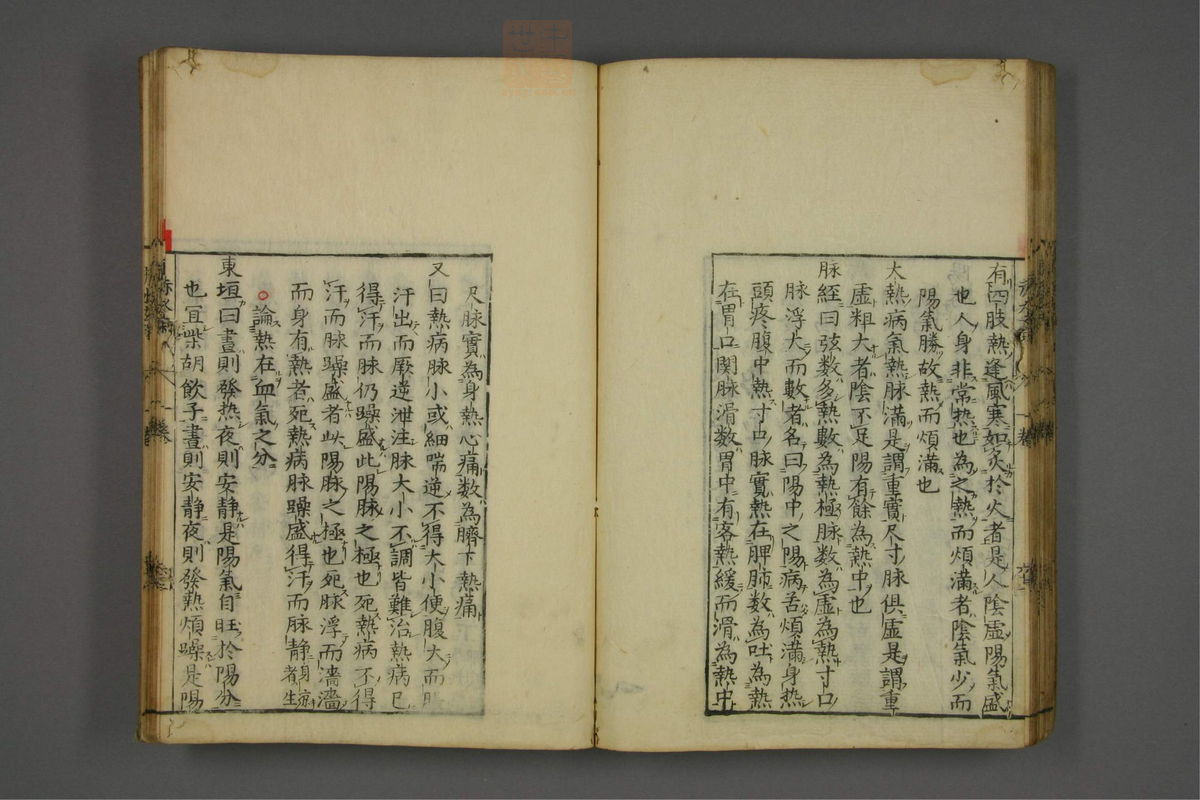 有四肢熱逢風寒如炙於火者是人陰虛陽氣盛
也人身非常热也為之熱而煩滿者陰氣少而
陽氣勝故熱而煩滿也
大熱病氣熱脉滿是謂重實尺寸脉俱虛是謂重
虛粗大者陰不足陽有餘為熱中也
脉經曰弦数多熱數為熱極脉数為虛為熱寸口
脉浮大而數者名曰陽中之陽病舌煩滿身热
頭疼腹中熱寸口脉實熱在脾肺数為吐為熱
在胃口関脉滑数胃中有客熱緩而滑為熱中
尺脉實為身熱心痛数為臍下熱痛
又曰熱病脉小或細喘逆不得大小便腹大而
汗出而厥逆泄注脉大小不調皆難治熱病已
得汗而脉仍躁盛此陽脉之極也死熱病不得
汗而脉躁盛者此陽脉之極也死脉浮而濇濇
而身有熱者死熱病脉躁盛得汗而脉静者生
○論熱在血氣之分
東垣曰晝則發热夜則安静是陽氣自旺於陽分
也宜柴胡飲子晝則安静夜則發熱煩躁是陽